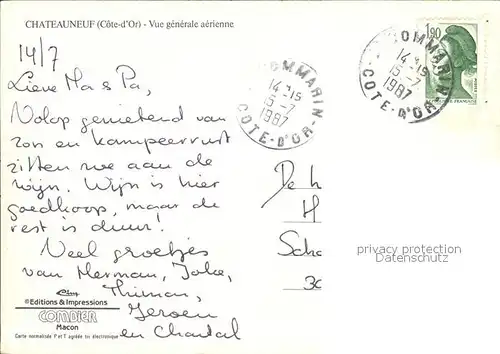 CHATEAUNEUF (Côte-d'Or) - Vue générale aérienne
14/7
Lieve Ma & Pa,
Volop genietend van
zon en kampeerrust
zitten we aan de
wijn. Wijn is hier
goedkoop, maar de
rest is duur!
Veel groetjes
van Herman, Joke,
Thieman,
Jeroen
en Chantal
©Editions & Impressions
COMBIER
Macon
Carte normalisée P et T agréée tri électronique
COMMARIN
14-15
15-7
1987
COTE-D'OR
1,90
OMMARIN
14-15
15-7
1987
COTE-D'OR
De h
H
Scha
30
privacy protection
Datenschutz